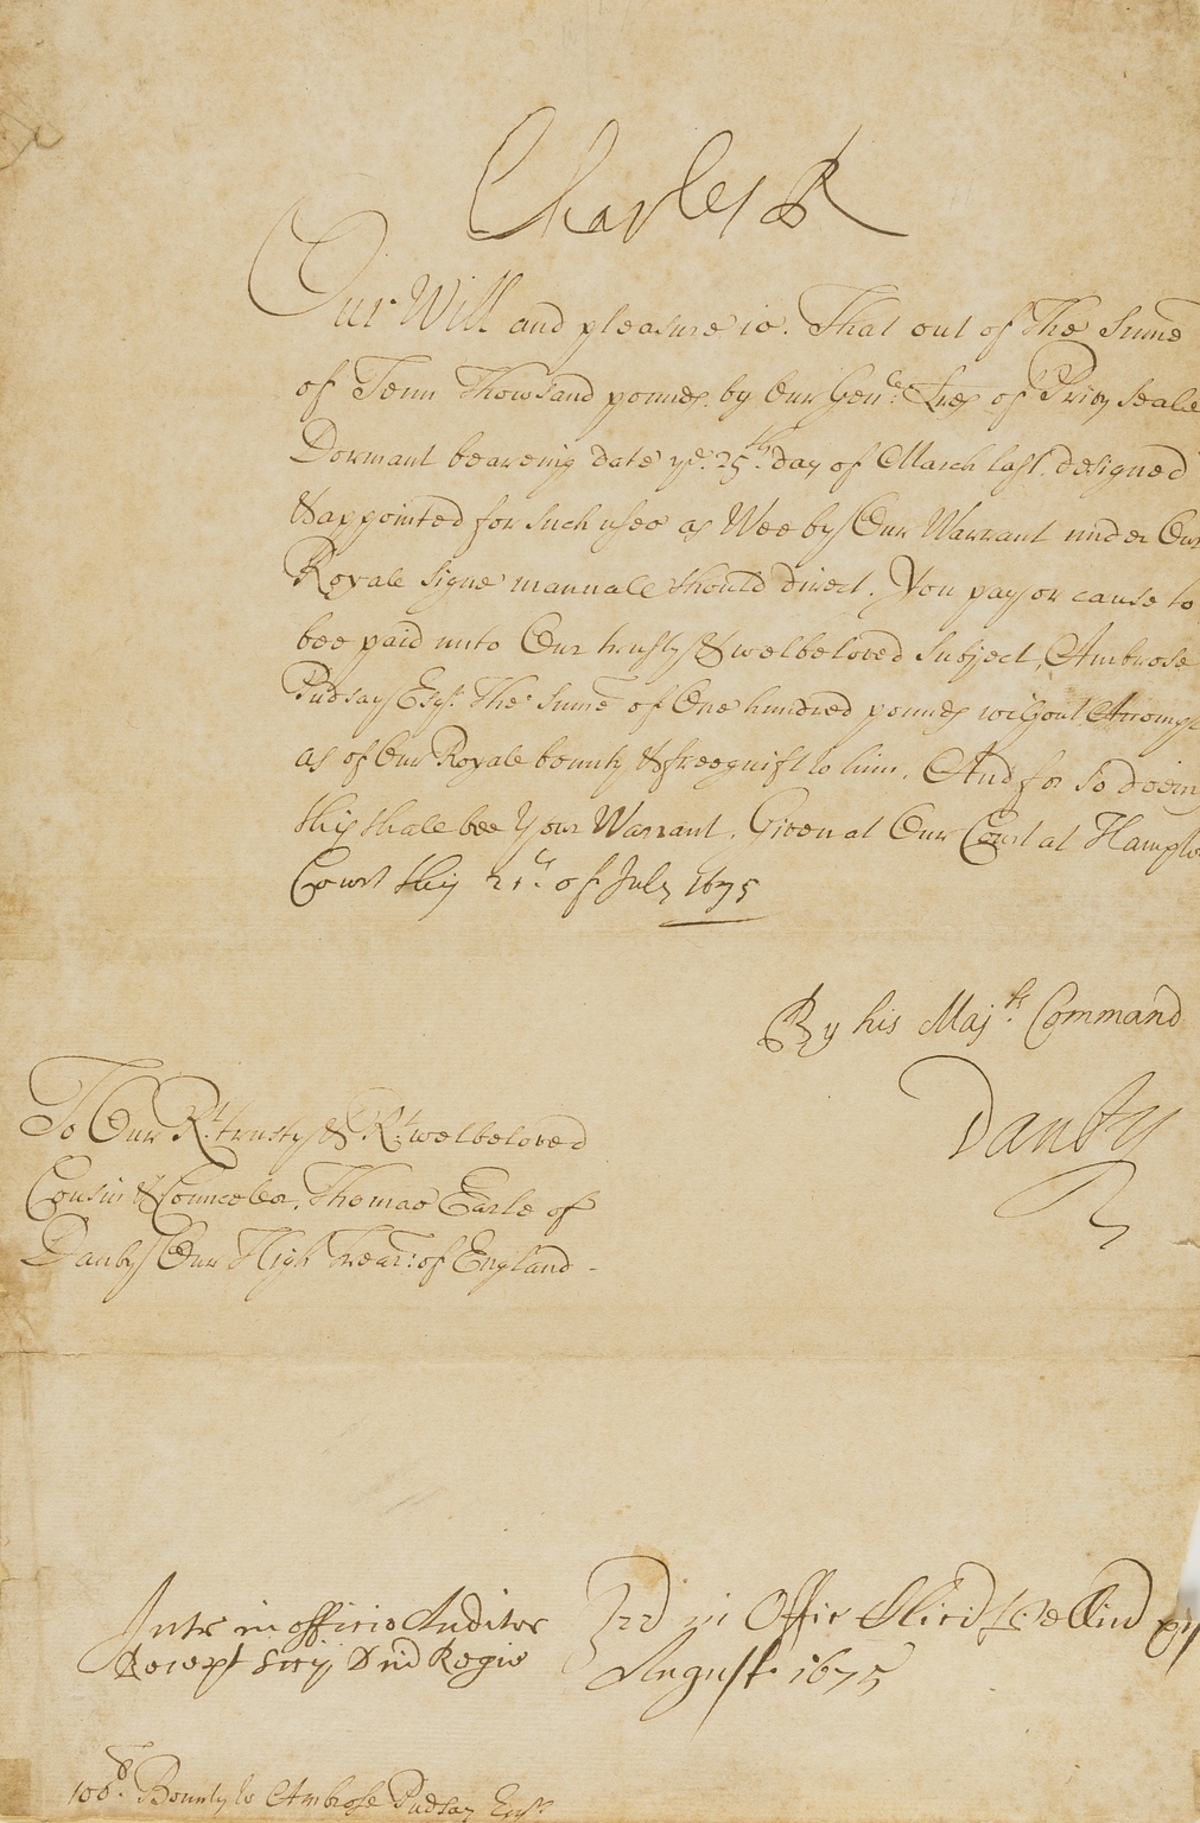 Charles R
Our Will and pleasure is. That out of The Sume
of Tenn Thowsand pounds by Our Genll: Lres of Privy Seale
Dormant beareing date ye. 25th. day of March last. designed
& appointed for such uses as Wee by Our Warrant under Our
Royale signe manuale should direct. You pay or cause to
bee paid unto Our trusty & welbeloved Subject, Ambrose
Pudsay Esqr. The Sume of One hundred pounds without Accompt
as of Our Royale bounty & free guift to him. And for so doein
this shale bee Your Warrant. Given at Our Court at Hampto
Court this 21th. of July 1675
By his Majts. Command
Danby
To Our Rt. trusty & Rt. welbeloved
Cousin & Councelor, Thomas Earle of
Danby Our High Trear: of England -
Intr in officio Auditor
Recept Sccij Dni Regis
Ird in Offic
August. 1675
100 Bounty to Ambrose Pudsay Esqr